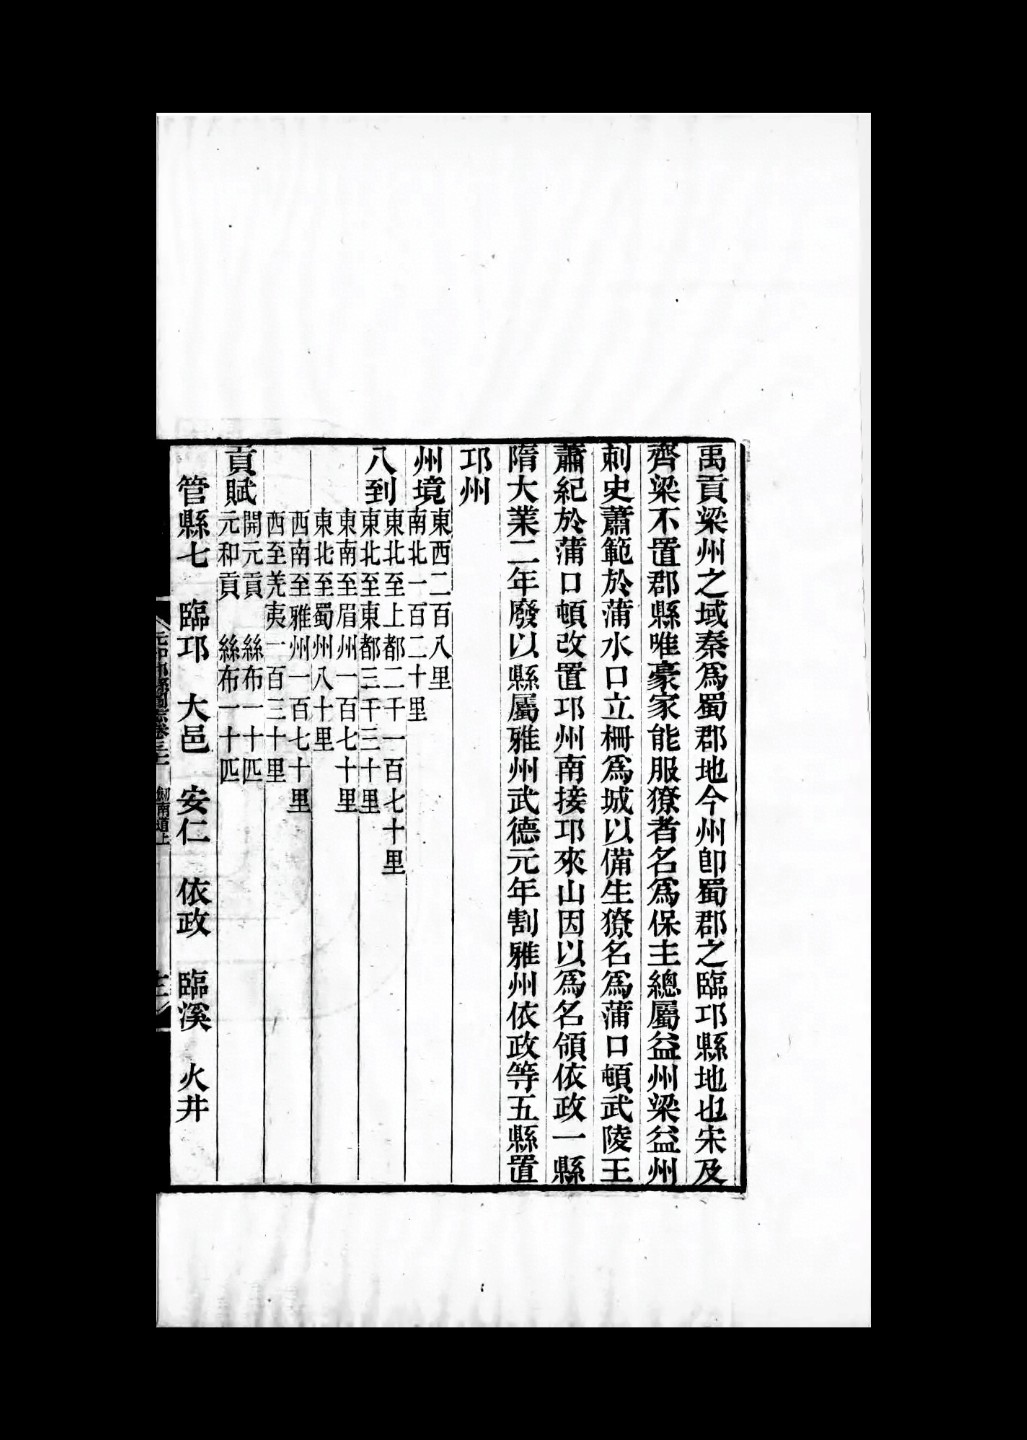 禹貢梁州之域秦爲蜀郡地今州卽蜀郡之臨邛縣地也宋及
齊梁不置郡縣唯豪家能服獠者名爲保主總屬益州梁益州
刺史蕭範於蒲水口立柵爲城以備生獠名爲蒲口頓武陵王
蕭紀於蒲口頓改置邛州南接邛來山因以爲名領依政一縣
隋大業二年廢以縣屬雅州武德元年割雅州依政等五縣置
邛州
州境東西二百八里
南北一百二十里
八到東北至上都二千一百七十里
東北至東都三千三十里
東南至眉州一百七十里
東北至蜀州八十里
西南至雅州一百七十里
西至羌夷一百三十里
貢賦開元貢 絲布一十匹
元和貢 絲布一十匹
管縣七 臨邛 大邑 安仁 依政 臨溪 火井